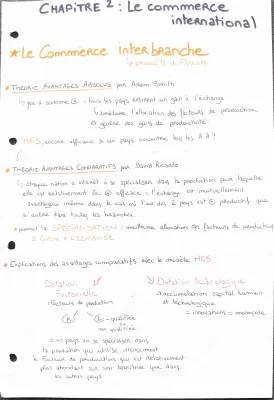 CHAPITRE 2 : Le commerce
international
★ Le Commerce interbranche
↳ produits différents
• THEORIE AVANTAGES ABSOLUS par Adam Smith
tous les pays retirent un gain à l'échange
↳ améliore l'allocation des facteurs de production
et génère des gains de productivité
• THEORIE AVANTAGES COMPARATIFS par David Ricardo
↳ chaque nation a intérêt à se spécialiser dans la production pour laquelle
elle est relativement la + efficace = l'échange est mutuellement
avantageux même dans le cas où l'un des 2 pays est + productif que
l'autre dans toutes les branches.
• permet la SPECIALISATION = meilleure allocation des facteurs de production
• Explications des avantages comparatifs avec le modèle HOS
Dotation
Factorielle
facteurs de production
K
L - qualifiée
- non qualifiée
Dotation technologique
↳ accumulation capital humain
et technologique
= innovations = monopole
un pays va se spécialiser dans
la production qui utilise intensément
le facteur de production qui est relativement
plus abondant sur son territoire que dans
les autres pays